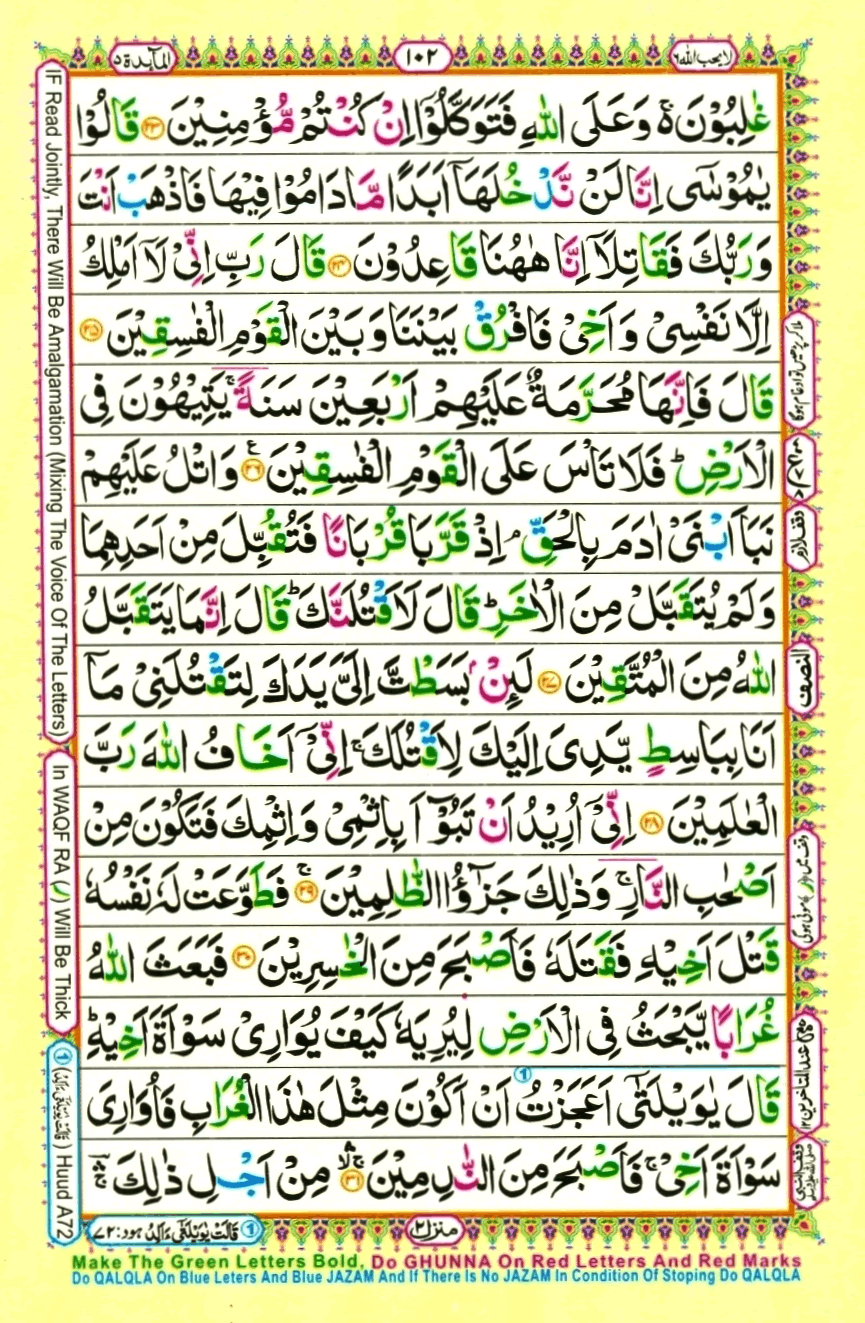 المآىٕدة ٥
١٠٢
لا يحب الله ٦
غٰلِبُوْنَ ۬ۚ وَ عَلَى اللّٰهِ فَتَوَكَّلُوْۤا اِنْ كُنْتُمْ مُّؤْمِنِيْنَ ﴿۲۳﴾ قَالُوْا
يٰمُوْسٰۤى اِنَّا لَنْ نَّدْخُلَهَاۤ اَبَدًا مَّا دَامُوْا فِيْهَا فَاذْهَبْ اَنْتَ
وَ رَبُّكَ فَقَاتِلَاۤ اِنَّا هٰهُنَا قَاعِدُوْنَ ﴿۲۴﴾ قَالَ رَبِّ اِنِّيْ لَاۤ اَمْلِكُ
اِلَّا نَفْسِيْ وَ اَخِيْ فَافْرُقْ بَيْنَنَا وَ بَيْنَ الْقَوْمِ الْفٰسِقِيْنَ ﴿۲۵﴾
قَالَ فَاِنَّهَا مُحَرَّمَةٌ عَلَيْهِمْ اَرْبَعِيْنَ سَنَةً ۚ يَتِيْهُوْنَ فِي
الْاَرْضِ ؕ فَلَا تَاْسَ عَلَى الْقَوْمِ الْفٰسِقِيْنَ ﴿۲۶﴾ وَ اتْلُ عَلَيْهِمْ
نَبَاَ ابْنَيْ اٰدَمَ بِالْحَقِّ ۘ اِذْ قَرَّبَا قُرْبَانًا فَتُقُبِّلَ مِنْ اَحَدِهِمَا
وَ لَمْ يُتَقَبَّلْ مِنَ الْاٰخَرِ ؕ قَالَ لَاَقْتُلَنَّكَ ؕ قَالَ اِنَّمَا يَتَقَبَّلُ
اللّٰهُ مِنَ الْمُتَّقِيْنَ ﴿۲۷﴾ لَىِٕنْۢ بَسَطْتَّ اِلَيَّ يَدَكَ لِتَقْتُلَنِيْ مَاۤ
اَنَا بِبَاسِطٍ يَّدِيَ اِلَيْكَ لِاَقْتُلَكَ ۚ اِنِّيْۤ اَخَافُ اللّٰهَ رَبَّ
الْعٰلَمِيْنَ ﴿۲۸﴾ اِنِّيْۤ اُرِيْدُ اَنْ تَبُوْٓءَا بِاِثْمِيْ وَ اِثْمِكَ فَتَكُوْنَ مِنْ
اَصْحٰبِ النَّارِ ۚ وَ ذٰلِكَ جَزٰٓؤُا الظّٰلِمِيْنَ ﴿۲۹﴾ ۚ فَطَوَّعَتْ لَهٗ نَفْسُهٗ
قَتْلَ اَخِيْهِ فَقَتَلَهٗ فَاَصْبَحَ مِنَ الْخٰسِرِيْنَ ﴿۳۰﴾ فَبَعَثَ اللّٰهُ
غُرَابًا يَّبْحَثُ فِي الْاَرْضِ لِيُرِيَهٗ كَيْفَ يُوَارِيْ سَوْاَةَ اَخِيْهِ ؕ
قَالَ يٰوَيْلَتٰۤى اَعَجَزْتُ اَنْ اَكُوْنَ مِثْلَ هٰذَا الْغُرَابِ فَاُوَارِيَ
سَوْاَةَ اَخِيْ ۚ فَاَصْبَحَ مِنَ النّٰدِمِيْنَ ﴿۳۱﴾ مِنْ اَجْلِ ذٰلِكَ
وقف لازم
النصف
عند المتاخرين ١٢
منزل ٢
① قَالَتْ يٰوَيْلَتٰۤى ءَاَلِدُ هود: ٧٢
IF Read Jointly, There Will Be Amalgamation (Mixing The Voice Of The Letters)
In WAQF RA (ر) Will Be Thick
① (قَالَتْ يٰوَيْلَتٰۤى ءَاَلِدُ) Huud A72
Make The Green Letters Bold, Do GHUNNA On Red Letters And Red Marks
Do QALQLA On Blue Leters And Blue JAZAM And If There Is No JAZAM In Condition Of Stoping Do QALQLA